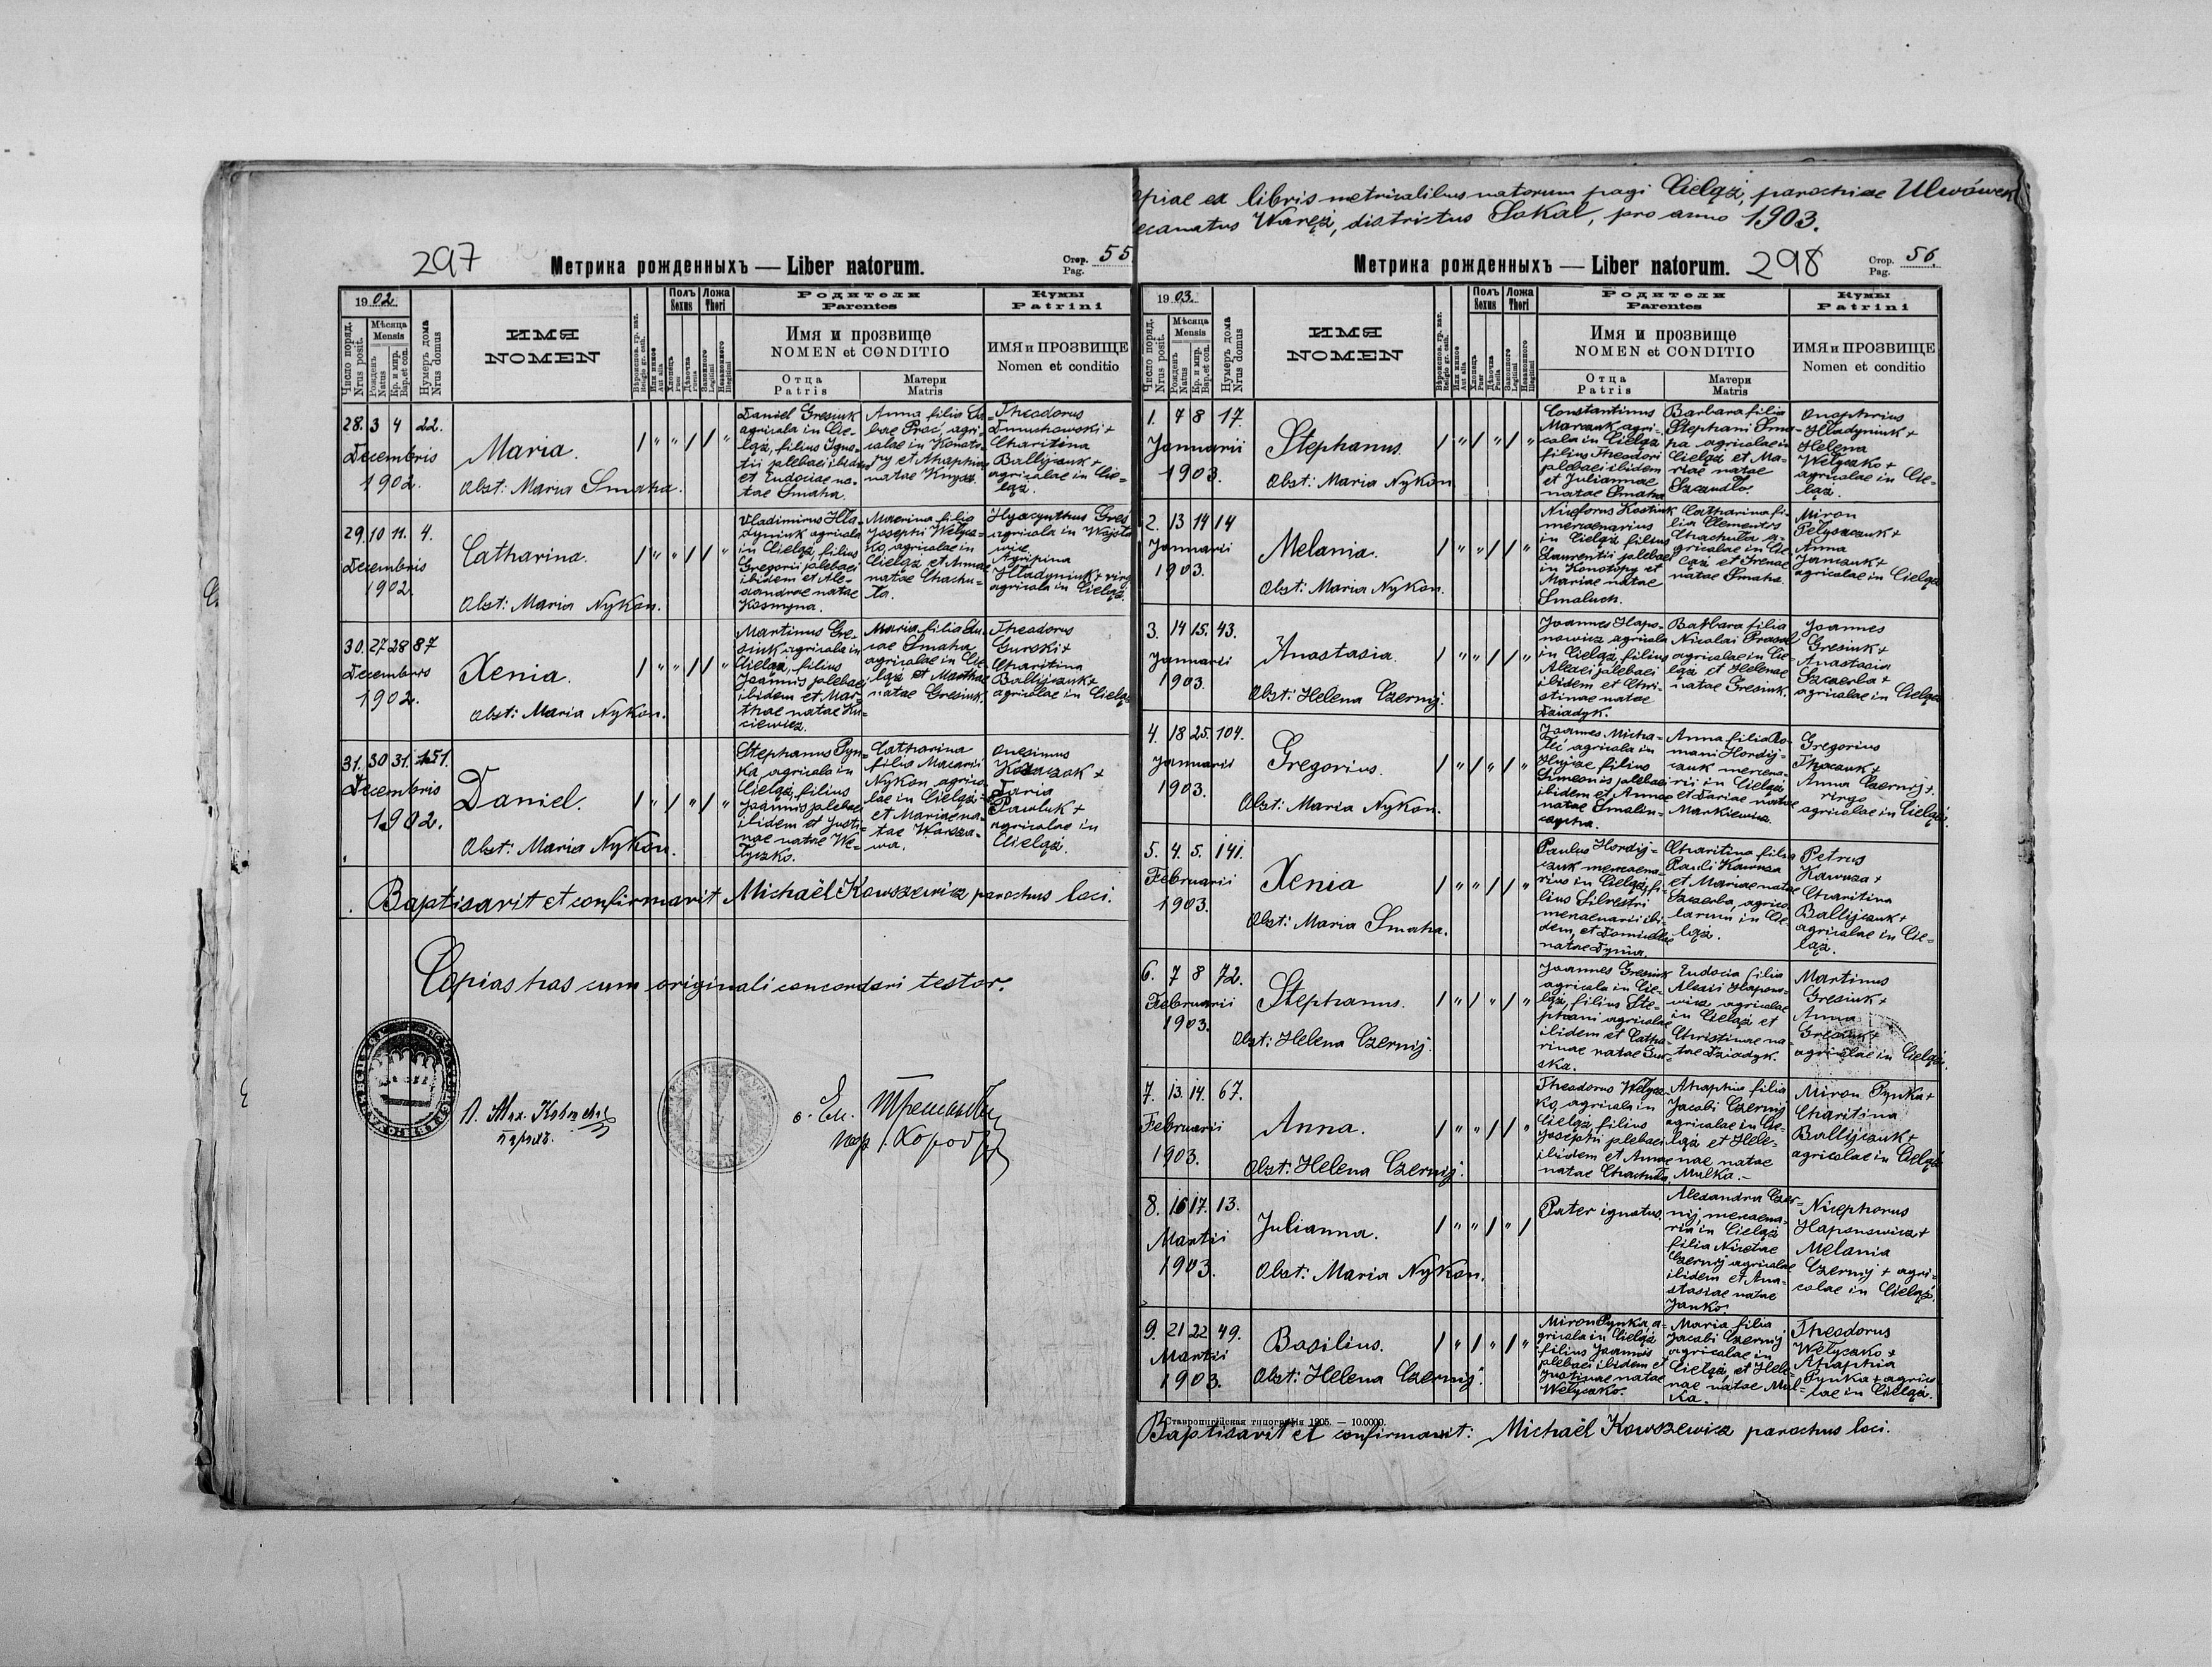 297
Метрика рожденныхъ — Liber natorum.
Стор. Pag. 55
1902
Число поряд. Nrus posit.
Мѣсяца Mensis
Рожденъ Natus
Кр. и мир. Bap. et con.
Нумеръ дома Nrus domus
ИМЯ
NOMEN
Полъ Sexus
Ложа Thori
Родители
Parentes
Имя и прозвище
NOMEN et CONDITIO
Отца Patris
Матери Matris
Кумы
Patrini
ИМЯ и ПРОЗВИЩЕ
Nomen et conditio
28. 3 4 22.
Decembris
1902.
Maria.
Obst: Maria Smaha.
Daniel Gresiuk
agricola in Cie=
ląż, filius Igna=
tii plebaei ibidem
et Eudociae na=
tae Smaha.
Anna filia
agri=
colae in Konoto=
py et Ahaphiae
natae
Theodorus
Charitina
Ballijczuk +
agricolae in Cie=
ląż.
29. 10 11. 4.
Decembris
1902.
Catharina.
Obst: Maria Nykon.
Vladimirus Hła=
dyniuk agricola
in Cieląż, filius
Gregorii plebaei
ibidem et Ale=
xandrae natae
Kosmyna.
Macrina filia
Josephi Wełycz=
ko, agricolae in
Cieląż et Annae
natae Chachu=
ła.
Hyacynthus Gres
agricola in
Agripina
Hładyniuk + virgo
agricola in Cieląż.
30. 27 28 87
Decembris
1902.
Xenia.
Obst: Maria Nykon.
Martinus Gre=
siuk agricola in
Cieląż, filius
Joannis plebaei
ibidem et Mar=
thae natae Ku=
ciewicz.
Maria filia Lu=
cae Smaha
agricolae in Cie=
ląż et Marthae
natae Gresiuk.
Theodorus
Gurski +
Charitina
Ballijczuk +
agricolae in Cieląż
31. 30 31. 151.
Decembris
1902.
Daniel.
Obst: Maria Nykon.
Stephanus Pyn=
ka, agricola in
Cieląż, filius
Joannis plebaei
ibidem et Justi=
nae natae We=
łyczko.
Catharina
filia Macarii
Nykon agrico=
lae in Cieląż
et Mariae na=
tae Warsza=
wa.
Onesimus
Kozaczok +
Daria
Pawluk +
agricolae in
Cieląż.
Baptisavit et confirmavit Michaël Kowszewicz parochus loci.
Copias has cum originali concordari testor.
Copiae ex libris metricalibus natorum pagi Cieląż, parochiae Ulwówek
decanatus Waręż, districtus Sokal, pro anno 1903.
Метрика рожденныхъ — Liber natorum.
298
Стор. Pag. 56.
1903.
Число поряд. Nrus posit.
Мѣсяца Mensis
Рожденъ Natus
Кр. и мир. Bap. et con.
Нумеръ дома Nrus domus
ИМЯ
NOMEN
Полъ Sexus
Ложа Thori
Родители
Parentes
Имя и прозвище
NOMEN et CONDITIO
Отца Patris
Матери Matris
Кумы
Patrini
ИМЯ и ПРОЗВИЩЕ
Nomen et conditio
1. 7 8 17.
Januarii
1903.
Stephanus.
Obst: Maria Nykon.
Constantinus
Marczuk agri=
cola in Cieląż
filius Theodori
plebaei ibidem
et Juliannae
natae Smaha
Barbara filia
Stephani Sma=
ha agricolae in
Cieląż et Ma=
riae natae
Szczudło.
Onophrius
Hładyniuk +
Helena
Wełyczko +
agricolae in Cie=
ląż.
2. 13 14 14
Januarii
1903.
Melania.
Obst: Maria Nykon.
Niceforus Kostiuk
mercenarius
in Cieląż filius
Laurentii plebaei
in Konotopy et
Mariae natae
Smaluch.
Catharina fi=
lia Clementis
Chachuła a=
gricolae in Cie=
ląż et Irenae
natae Smaha.
Miron
Anna
Janczuk +
agricolae in Cieląż
3. 14 15. 43.
Januarii
1903.
Anastasia.
Obst: Helena Czernij.
Joannes Hapo=
nowicz agricola
in Cieląż, filius
Alexii plebaei
ibidem et Chri=
stinae natae
Dziadyk.
Barbara filia
Nicolai Prasol
agricolae in Cie=
ląż et Helenae
natae Gresiuk.
Joannes
Gresiuk +
Anastasia
Szczerba +
agricolae in Cieląż
4. 18 25. 104.
Januarii
1903.
Gregorius.
Obst: Maria Nykon.
Joannes Micha=
leć agricola in
Hujcze filius
Simeonis plebaei
ibidem et Annae
natae
Anna filia Ro=
mani Hordij=
czuk mercena=
rii in Cieląż
et Dariae natae
Markiewicz.
Gregorius
Tkaczuk +
Anna Czernij +
virgo
agricolae in Cieląż.
5. 4. 5. 141.
Februarii
1903.
Xenia
Obst: Maria Smaha.
Paulus Hordij=
czuk mercena=
rius in Cieląż, fi=
lius Silvestri
mercenarii ibi=
dem, et Domicellae
natae Dynia.
Charitina filia
Pauli Kawuza
et Mariae natae
Szczerba, agrico=
larum in Cie=
ląż.
Petrus
Kawuza +
Charitina
Ballijczuk +
agricolae in Cie=
ląż.
6. 7 8 72.
Februarii
1903.
Stephanus.
Obst: Helena Czernij.
Joannes Gresiuk
agricola in Cie=
ląż, filius Ste=
phani agricolae
ibidem et Catha=
rinae natae Gur=
ska.
Eudocia filia
Alexii Hapono=
wicz agricolae
in Cieląż et
Christinae na=
tae Dziadyk.
Martinus
Gresiuk +
Anna
Gresiuk +
agricolae in Cieląż.
7. 13. 14. 67.
Februarii
1903.
Anna.
Obst: Helena Czernij.
Theodorus Wełycz
ko, agricola in
Cieląż filius
Josephi plebaei
ibidem et Annae
natae Chachuła.
Ahaphia filia
Jacobi Czernij
agricolae in Cie=
ląż et Hele=
nae natae
Mulka.–
Miron Pynka +
Charitina
Ballijczuk +
agricolae in Cieląż
8. 16 17. 13.
Martii
1903.
Julianna.
Obst: Maria Nykon.
Pater ignotus.
Alexandra Czer=
nij, mercena=
ria in Cieląż
filia Nicolae
Czernij agricolae
ibidem et Ana=
stasiae natae
Janko.
Nicephorus
Haponowicz +
Melania
Czernij + agri=
colae in Cieląż.
9. 21 22 49.
Martii
1903.
Basilius.
Obst: Helena Czernij.
Miron Pynka, a=
gricola in Cieląż
filius Joannis
plebaei ibidem et
Justinae natae
Wełyczko.
Maria filia
Jacobi Czernij
agricolae in
Cieląż, et Hele=
nae natae Mul=
ka.
Theodorus
Wełyczko +
Ahaphia
Pynka + agrico
lae in Cieląż.
Ставропигійская типографія 1905. — 10.0000.
Baptisavit et confirmavit: Michaël Kowszewicz parochus loci.